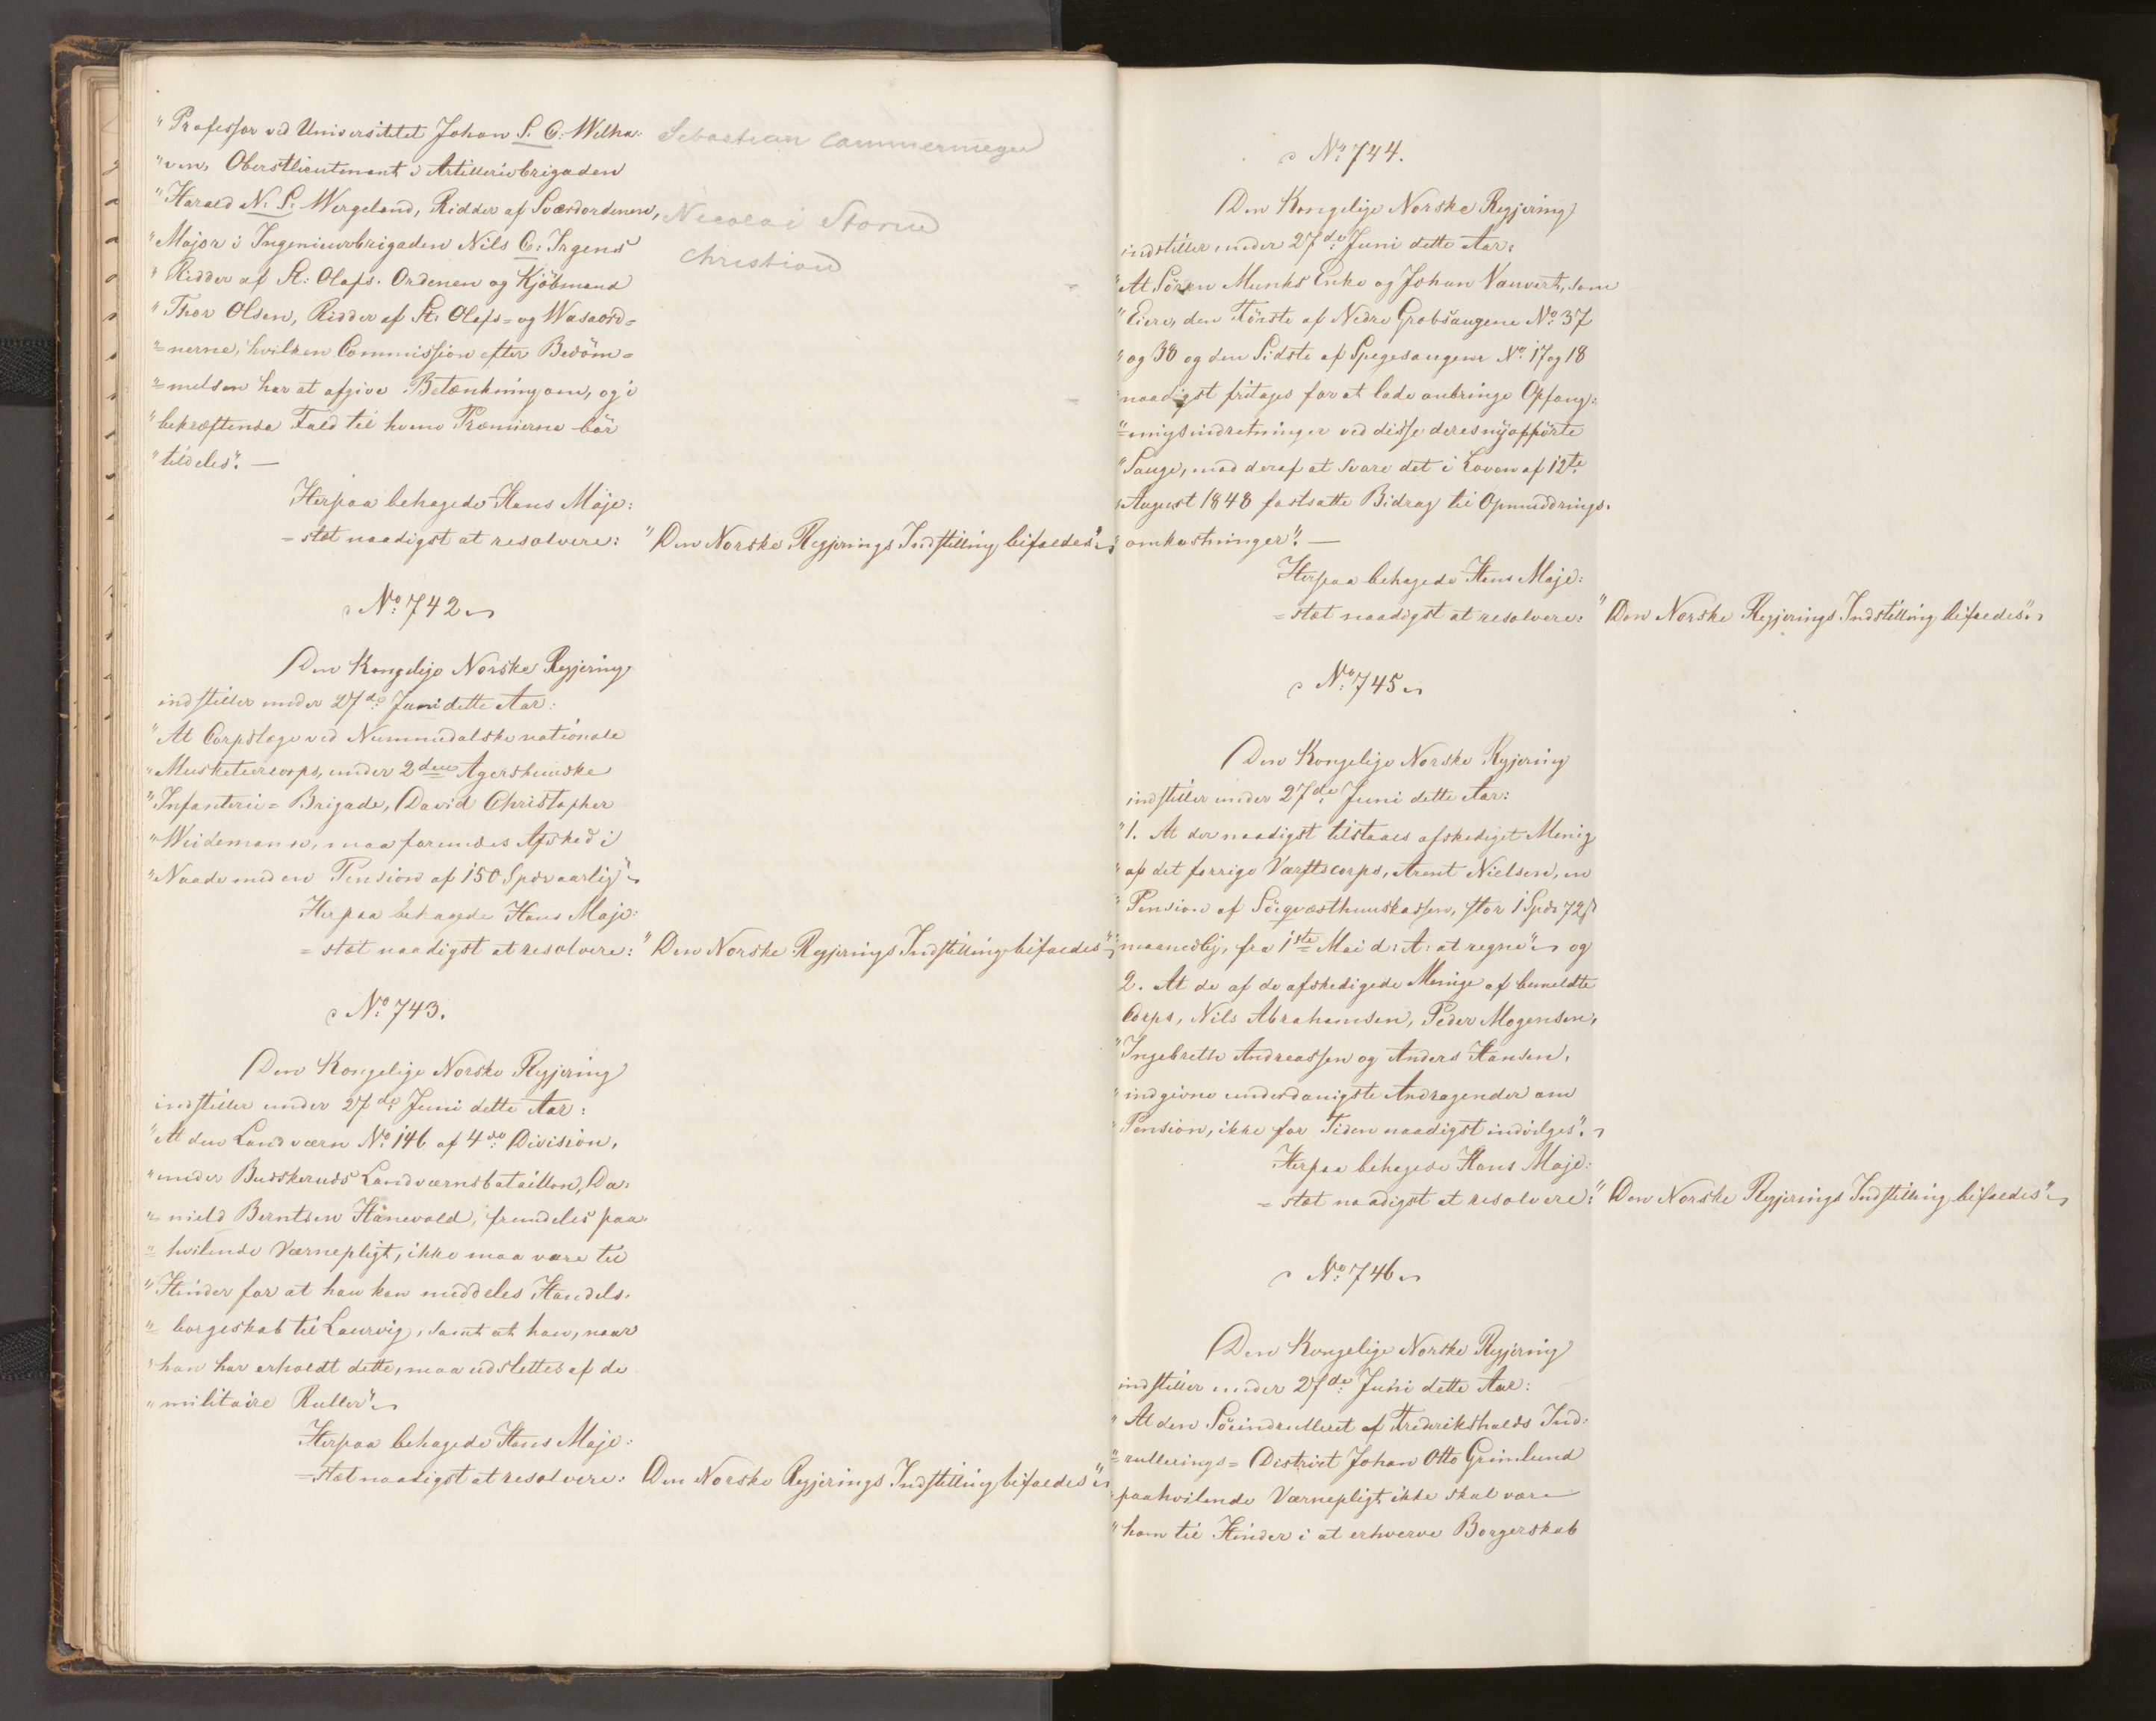 "Professor ved Universitetet Johan S. C. Welha-
"ven, Oberstlieutenant i Artilleribrigaden
"Harald N. S. Wergeland, Ridder af Sværdordenen,
"Major i Ingenieurbrigaden Nils C. Irgens
"Ridder af St. Olafs Ordenen og Kjöbmand
"Thor Olsen, Ridder af St. Olafs- og Wasaord-
"=nerne, hvilken Commission efter Bedöm-
"=melsen har at afgive Betænkning om, og i
"bekræftende Fald til hvem Præmierne bör
"tildeles". —
Sebastian Cammermeyer
Nicolai Storm
Christian
Herpaa behagede Hans Maje:
=stæt naadigst at resolvere: "Den Norske Regjerings Indstilling bifaldes"
No. 742
Den Kongelige Norske Regjering
indstiller under 27de Juni dette Aar:
"At Corpslæge ved Nummedalske nationale
"Musketeercorps, under 2den Agershuuske
"Infanterie-Brigade, David Christopher
"Weidemann, maa forundes Afsked i
"Naade med en Pension af 150 Spd aarlig"
Herpaa behagede Hans Maje:
=stæt naadigst at resolvere: "Den Norske Regjerings Indstilling bifaldes"
No. 743.
Den Kongelige Norske Regjering
indstiller under 27de Juni dette Aar:
"At den Landværn No. 146 af 4de Division,
"under Budskeruds Landværnsbataillon, Da-
"=nield Berntsen Hanevold, fremdeles paa-
"=hvilende Værnepligt, ikke maa være til
"Hinder for at han kan meddeles Handels-
"=borgeskab til Laurvig, samt at han, naar
"han har erholdt dette, maa udslettes af de
"militaire Ruller"
Herpaa behagede Hans Maje:
=stæt naadigst at resolvere: Den Norske Regjerings Indstilling bifaldes"
No. 744.
Den Kongelige Norske Regjering
indstiller under 27de Juni dette Aar:
"At Sören Munks Enke og Johan Vauvert, som
"Eiere, den Förste af Nedre Grobsaugene No. 37
"og 38 og den Sidste af Spegesaugene No. 17 og 18
"naadigst fritages for at lade anbringe Opfang-
"=ningsindretninger ved disse deres nyopförte
"Sauge, mod deraf at svare det i Loven af 12te
"August 1848 fastsatte Bidrag til Opmuddrings-
"omkostninger". —
Herpaa behagede Hans Maje:
=stæt naadigst at resolvere: "Den Norske Regjerings Indstilling bifaldes"
No. 745
Den Kongelige Norske Regjering
indstiller under 27de Juni dette Aar:
"1. At der naadigst tilstaaes afskediget Menig
"af det forrige Værftscorps, Arent Nielsen, en
"Pension af Söeqvæsthuuskassen, stor 1 Spd 72 ß
"maanedlig, fra 1ste Mai d: A: at regne" og
2. At de af de afskedigede Menige af bemeldte
Corps, Nils Abrahamsen, Peder Mogensen,
"Ingebreth Andreassen og Anders Hansen,
"indgivne underdanigste Andragender om
"Pension, ikke for Tiden naadigst indvilges".
Herpaa behagede Hans Maje:
=stæt naadigst at resolvere: "Den Norske Regjerings Indstilling bifaldes"
No. 746
Den Kongelige Norske Regjering
indstiller under 27de Juni dette Aar:
"At den Söeindrulleret af Frederikshalds Ind-
"=rullerings-District Johan Otto Grimlund
"paahvilende Værnepligt ikke skal være
"ham til Hinder i at erhverve Borgerskab